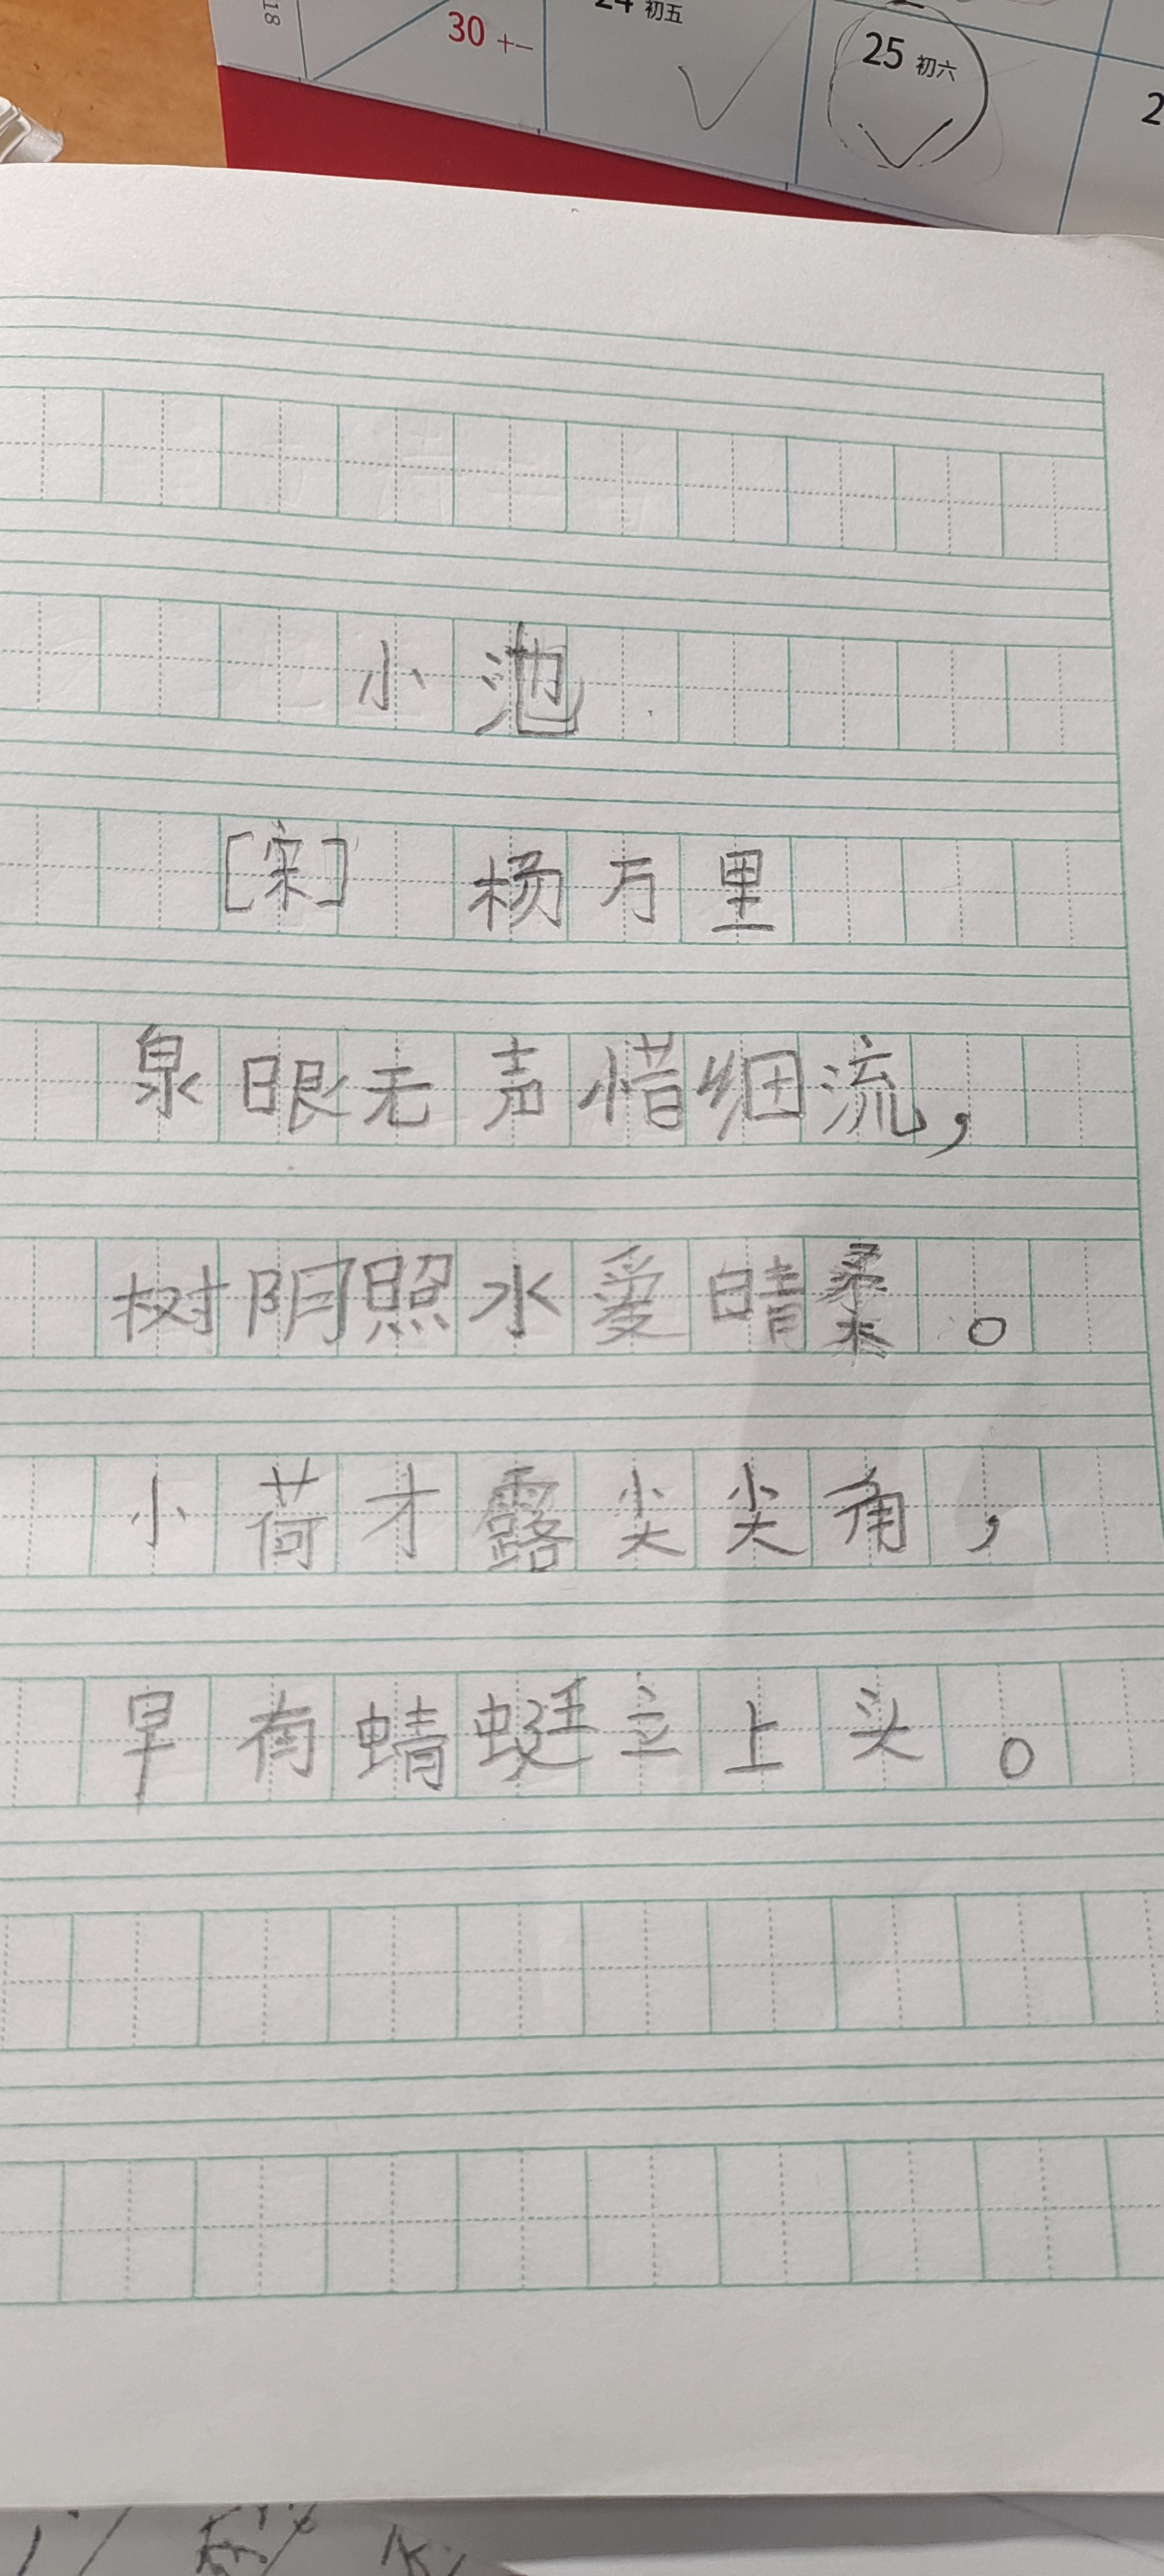 18
30 十一
24 初五
25 初六
2
小池
[宋] 杨万里
泉眼无声惜细流，
树阴照水爱晴柔。
小荷才露尖尖角，
早有蜻蜓立上头。